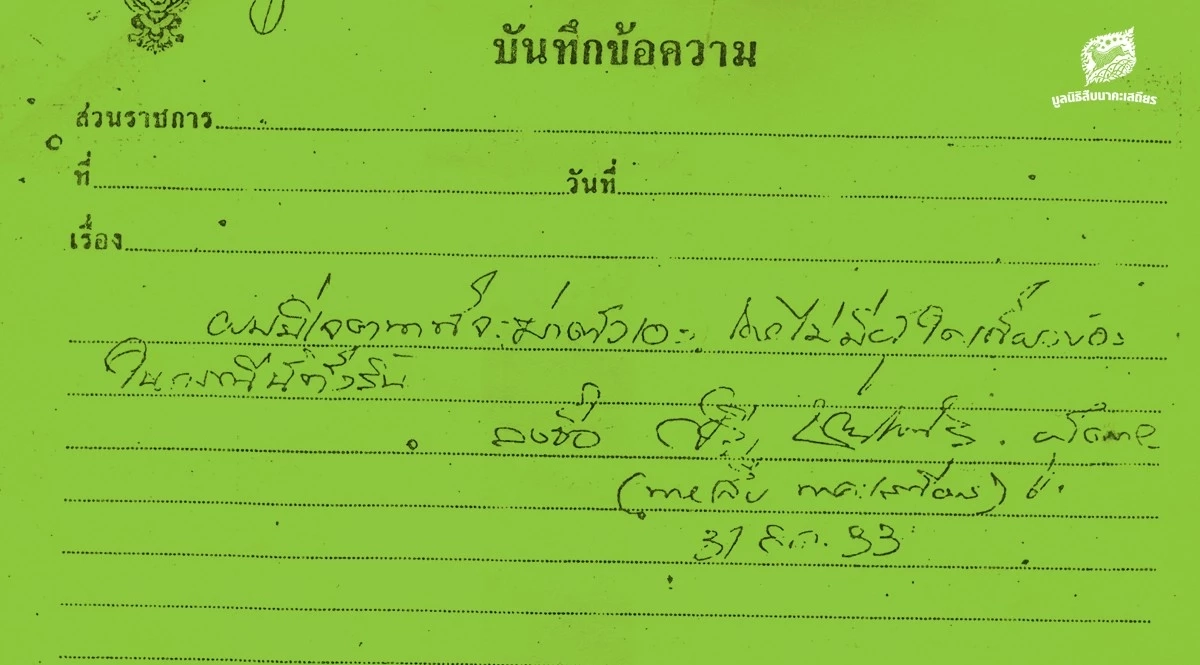 บันทึกข้อความ
มูลนิธิสืบนาคะเสถียร
ส่วนราชการ
ที่ วันที่
เรื่อง
ผมมีเจตนาที่จะฆ่าตัวเอง โดยไม่มีผู้ใดเกี่ยวข้อง
ในกรณีนี้ทั้งสิ้น
ลงชื่อ สืบ นาคะเสถียร ผู้ตาย
(นายสืบ นาคะเสถียร)
31 ส.ค. 33